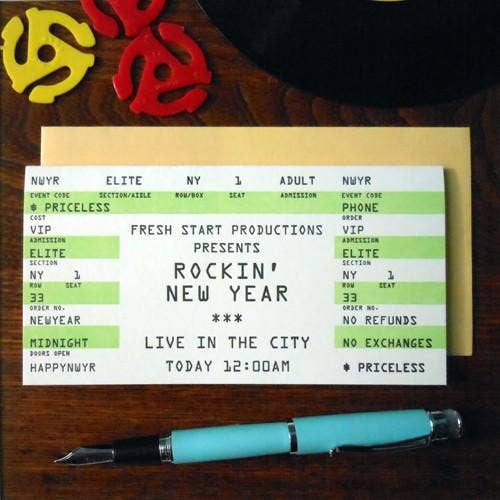 NWYR ELITE NY 1 ADULT NWYR
EVENT CODE SECTION/AISLE ROW/BOX SEAT ADMISSION EVENT CODE
* PRICELESS PHONE
COST ORDER
VIP VIP
ADMISSION ADMISSION
ELITE ELITE
SECTION SECTION
NY 1 NY 1
ROW SEAT ROW SEAT
33 33
ORDER NO. ORDER NO.
NEWYEAR NO REFUNDS
MIDNIGHT NO EXCHANGES
DOORS OPEN
HAPPYNWYR * PRICELESS
FRESH START PRODUCTIONS
PRESENTS
ROCKIN'
NEW YEAR
***
LIVE IN THE CITY
TODAY 12:00AM